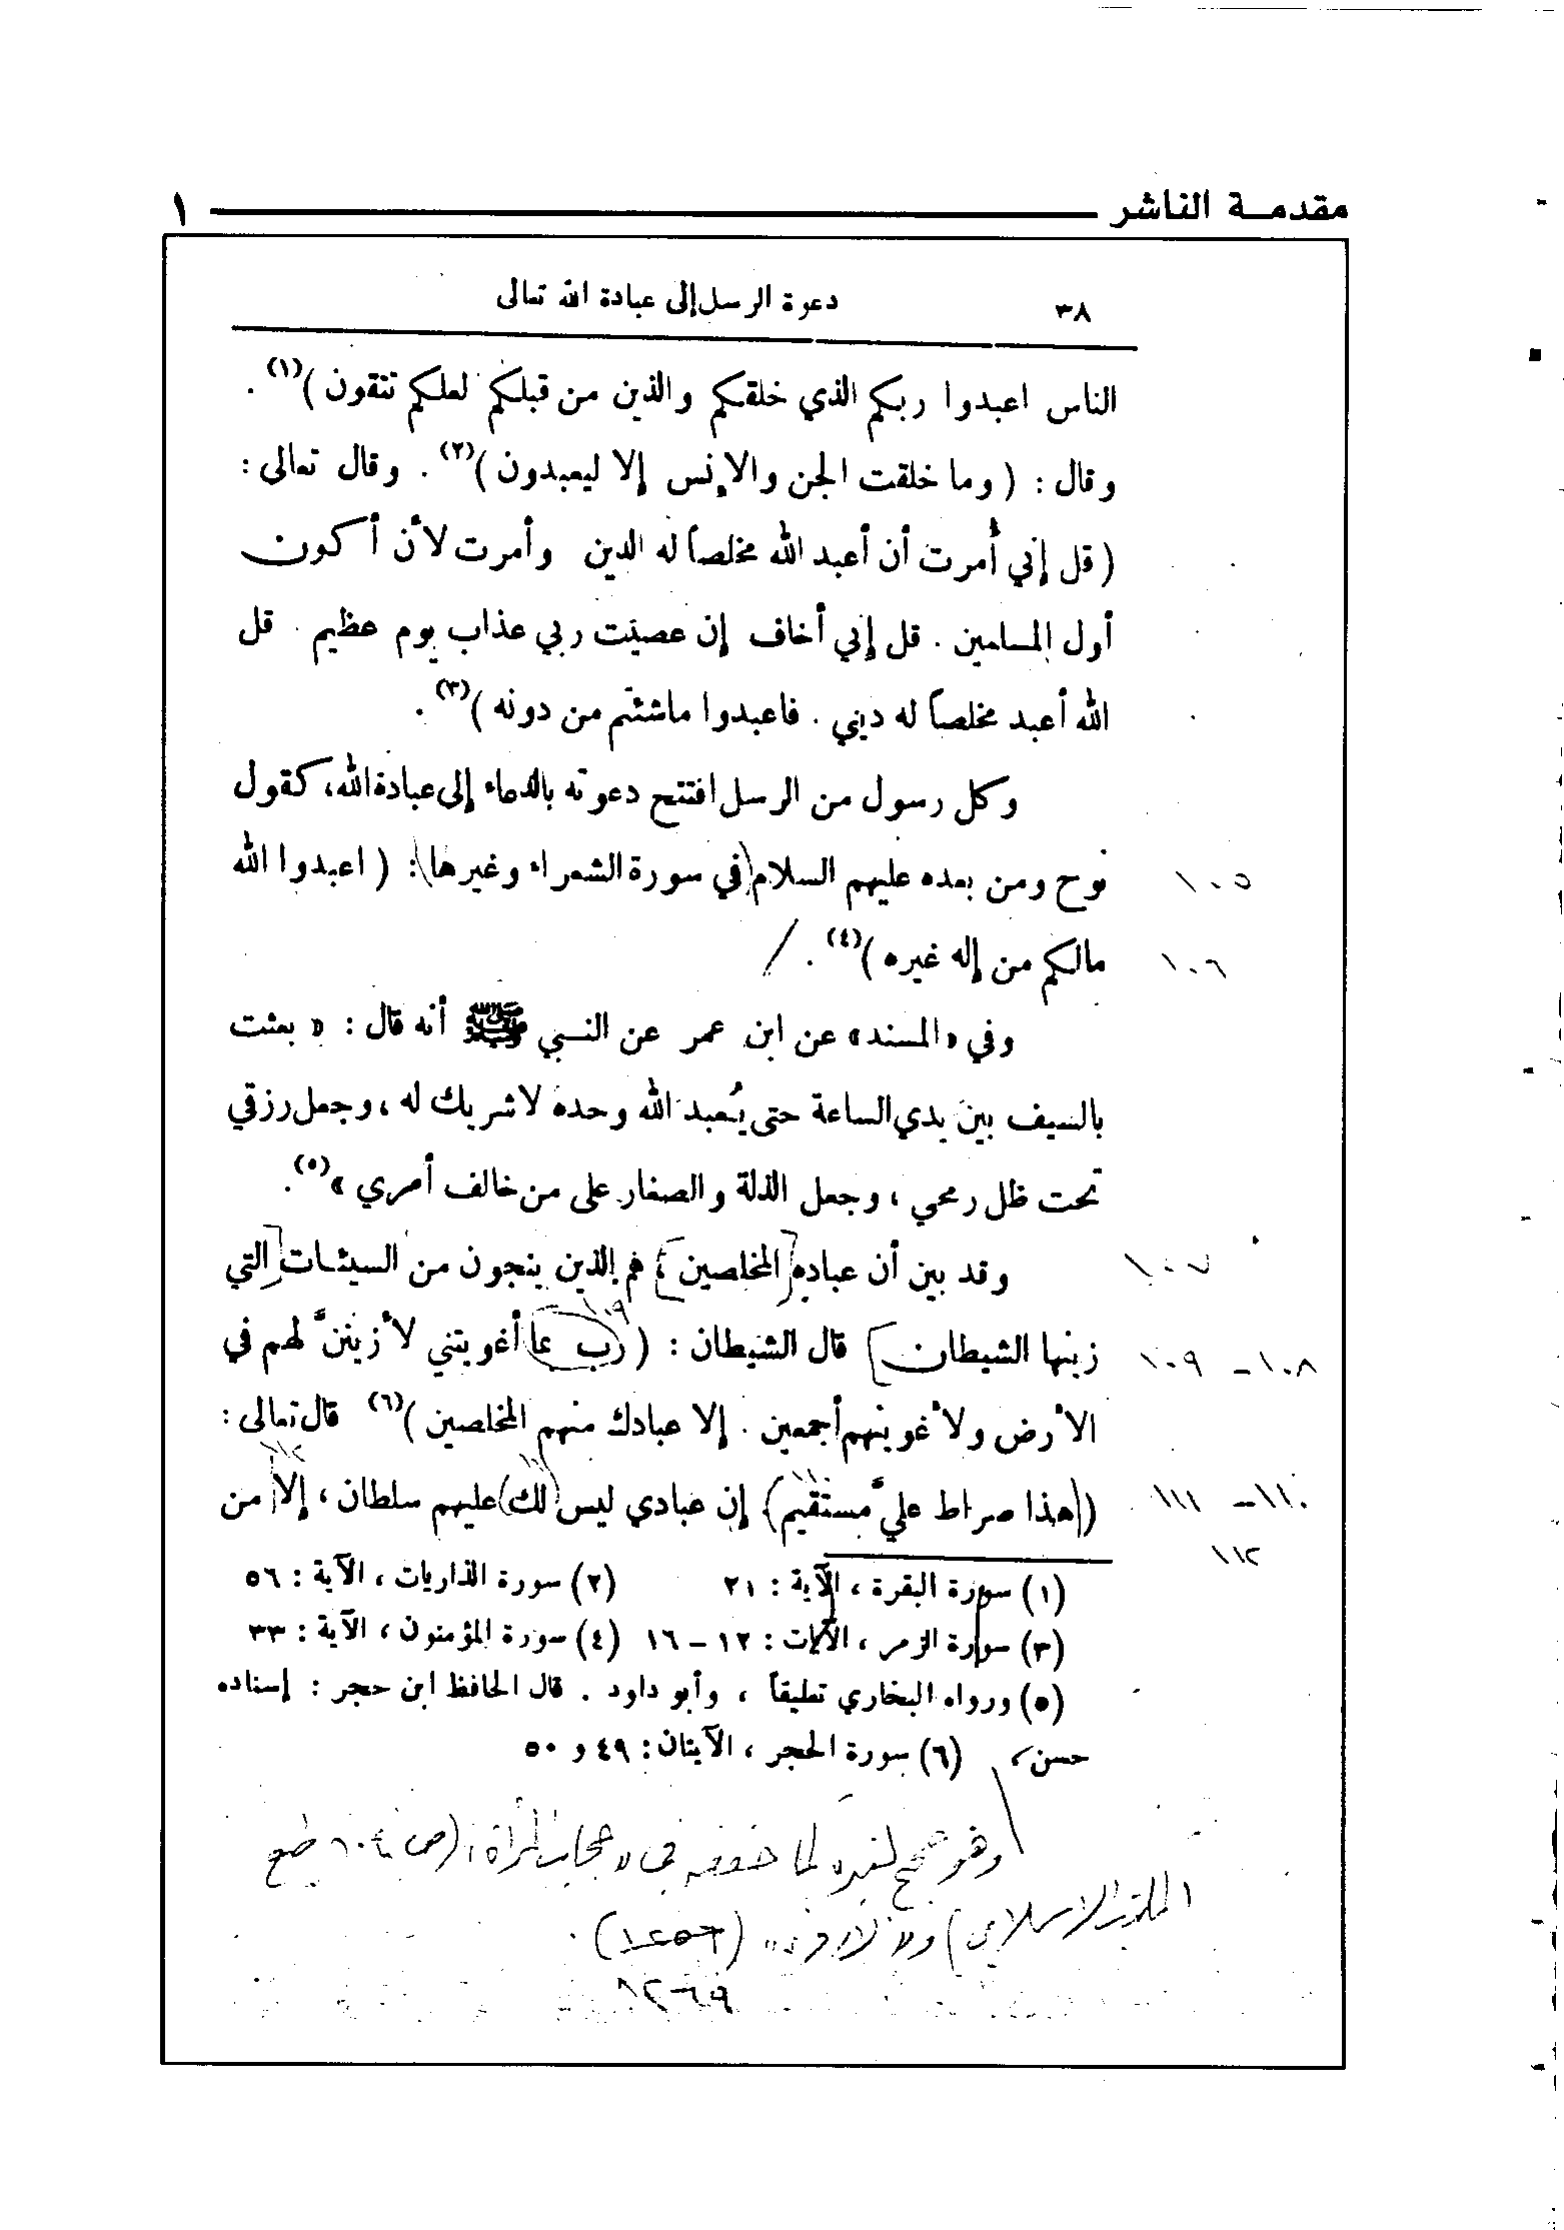 مقدمة الناشر ١
٣٨ دعوة الرسل إلى عبادة الله تعالى
الناس اعبدوا ربكم الذي خلقكم والذين من قبلكم لعلكم تتقون )(١) .
وقال : ( وما خلقت الجن والإنس إلا ليعبدون )(٢) . وقال تعالى :
( قل إني أُمرت أن أعبد الله مخلصاً له الدين وأمرت لأن أكون
أول المسلمين . قل إني أخاف إن عصيت ربي عذاب يوم عظيم . قل
الله أعبد مخلصاً له ديني . فاعبدوا ماشئتم من دونه )(٣) .
وكل رسول من الرسل افتتح دعوته بالدعاء إلى عبادة الله ، كقول
نوح ومن بعده عليهم السلام (في سورة الشعراء وغيرها) : ( اعبدوا الله
١٠٥
مالكم من إله غيره )(٤) . /
١٠٦
وفي «المسند» عن ابن عمر عن النبي ﷺ أنه قال : « بعثت
بالسيف بين يدي الساعة حتى يُعبد الله وحده لاشريك له ، وجعل رزقي
تحت ظل رمحي ، وجعل الذلة والصغار على من خالف أمري »(٥) .
وقد بين أن عباده [المخلصين] هم الذين ينجون من السيئات [التي
١٠٧
زينها الشيطان] قال الشيطان : ( رب بما أغويتني لأزيننَّ لهم في
١٠٨ – ١٠٩
١٠٩
الأرض ولأغوينهم أجمعين . إلا عبادك منهم المخلصين )(٦) قال تعالى :
( هذا صراط عليَّ مستقيم) إن عبادي ليس (لك) عليهم سلطان ، إلا من
١١٠ – ١١١
١١٢
١١١
١١٢
(١) سورة البقرة ، الآية : ٢١ (٢) سورة الذاريات ، الآية : ٥٦
(٣) سورة الزمر ، الآيات : ١٢ – ١٦ (٤) سورة المؤمنون ، الآية : ٣٣
(٥) ورواه البخاري تعليقاً ، وأبو داود . قال الحافظ ابن حجر : إسناده
حسن ، (٦) سورة الحجر ، الآيتان : ٤٩ و ٥٠
وهو صحيح لغيره كما حققته في «حجاب المرأة» (ص ١٠٤ طبع
المكتب الاسلامي) و«الارواء» (١٢٥٦) .
١٢٦٩